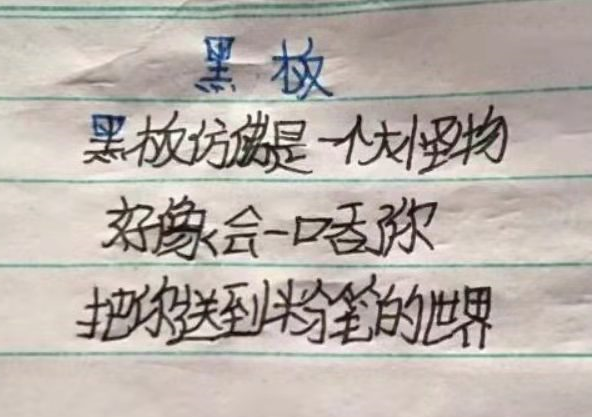 黑板
黑板仿佛是一个大怪物
好像会一口吞了你
把你送到粉笔的世界